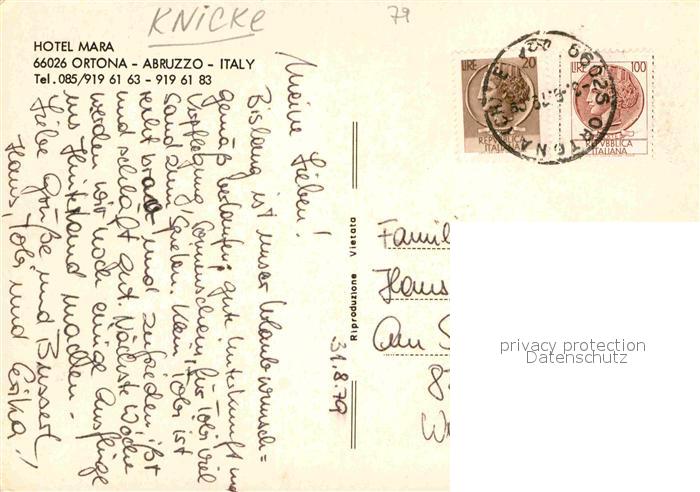 KNICKE
79
HOTEL MARA
66026 ORTONA - ABRUZZO - ITALY
Tel. 085/919 61 63 - 919 61 83
LIRE 20
REPVBBLICA
ITALIANA
LIRE 100
REPVBBLICA
ITALIANA
66026 ORTONA (CH)
Meine Lieben!
Bislang ist unser Urlaub wunsch=
gemäß verlaufen, gute Unterkunft und
Verpflegung, Sonnenschein, für Tobi viel
Sand zum Spielen. Klein Tobi ist
recht brav und zufrieden, ißt
und schläft gut. Nächste Woche
werden wir noch einige Ausflüge
ins Hinterland machen.
Liebe Grüße und Bussert
Hans, Tobi und Erika!
31.8.79
Riproduzione Vietata
Famil
Hans
Am S
8
W
privacy protection
Datenschutz